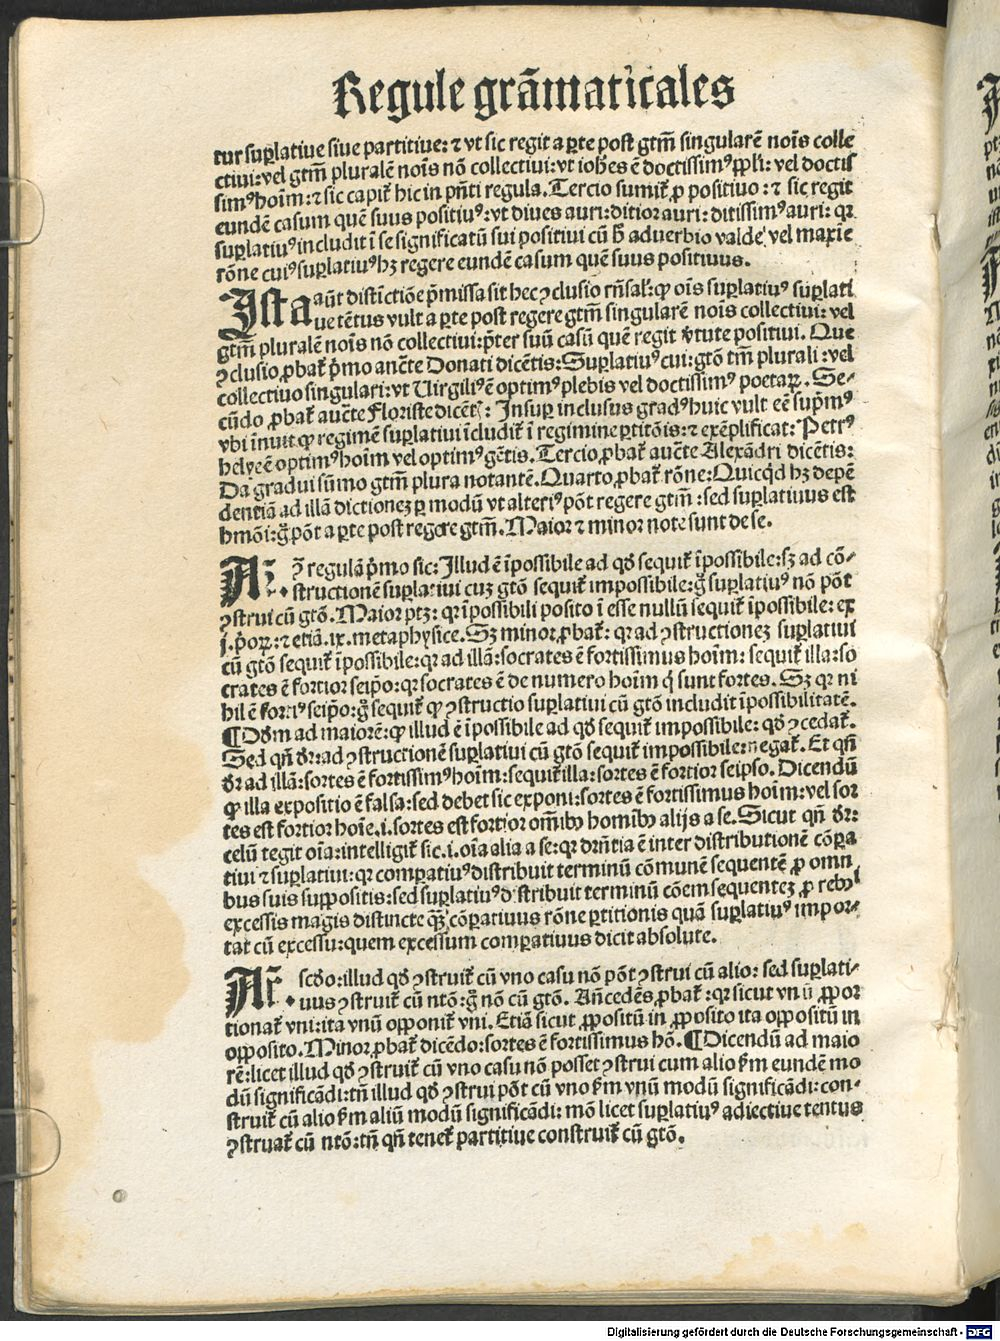 Regule grãmaticales
tur suꝑlatiue siue partitiue: ⁊ vt sic regit a ꝑte post gtm̃ singularẽ noĩs colle
ctiui: vel gtm̃ pluralẽ noĩs nõ collectiui: vt ioh̃es ẽ doctissimꝰ ppl̃i: vel doctis
simꝰ hoĩm: ⁊ sic capit᷑ hic in pñti regula. Tercio sumit᷑ ꝓ positiuo: ⁊ sic regit
eundẽ casum quẽ suus positiuꝰ: vt diues auri: ditior auri: ditissimꝰ auri: qꝛ
suꝑlatiuꝰ includit ĩ se significatũ sui positiui cũ h̃ aduerbio valde vel maxie
rõne cuiꝰ suꝑlatiuꝰ hꝫ regere eundẽ casum quẽ suus positiuus.
Ista añt distĩctiõe p̃missa sit hec ꝯclusio rñsal': ꝙ oĩs suꝑlatiuꝰ suꝑlati
ue tẽtus vult a ꝑte post regere gtm̃ singularẽ noĩs collectiui: vel
gtm̃ pluralẽ noĩs nõ collectiui: p̃ter suũ casũ quẽ regit v̾tute positiui. Que
ꝯclusio ꝓbat᷑ p̃mo auc̃te Donati dicẽtis: Suꝑlatiuꝰ cui: gtõ tm̃ plurali: vel
collectiuo singulari: vt Uirgiliꝰ ẽ optimꝰ plebis vel doctissimꝰ poetaꝝ. Se-
cũdo ꝓbat᷑ auc̃te Floriste dicẽt̃: Insuꝑ inclusus gradꝰ huic vult eẽ sup̃mꝰ
vbi ĩnuit ꝙ regimẽ suꝑlatiui ĩcludit᷑ ĩ regimine ꝑtitõis: ⁊ exẽplificat: Petrꝰ
helye ẽ optimꝰ hoĩm vel optimꝰ gẽtis. Tercio ꝓbat᷑ auc̃te Alexãdri dicẽtis:
Da gradui sũmo gtm̃ plura notantẽ. Quarto ꝓbat᷑ rõne: Quicq̃d hꝫ depẽ
dentiã ad illã dictionez ꝑ modũ vt alteriꝰ põt regere gtm̃: sed suꝑlatiuus est
hmõi: g̃ põt a ꝑte post regere gtm̃. Maior ⁊ minor note sunt de se.
Aꝝ ꝯ̃ regulã p̃mo sic: Illud ẽ ĩpossibile ad qd̃ sequit᷑ ĩpossibile: sꝫ ad cõ-
structionẽ suꝑlatiui cuz gtõ sequit᷑ impossibile: g̃ suꝑlatiuꝰ nõ põt
ꝯstrui cũ gtõ. Maior ptꝫ: qꝛ ĩpossibili posito ĩ esse nullũ sequit᷑ ĩpossibile: ex
j. p̃oꝝ: ⁊ etiã. ix. metaphysice. Sꝫ minor ꝓbat᷑: qꝛ ad ꝯstructionez suꝑlatiui
cũ gtõ sequit᷑ ĩpossibile: qꝛ ad illã: socrates ẽ fortissimus hoĩm: sequit᷑ illa: so
crates ẽ fortior seip̃o: qꝛ socrates ẽ de numero hoĩm q̃ sunt fortes. Sꝫ qꝛ ni
hil ẽ fortiꝰ seip̃o: g̃ sequit᷑ ꝙ ꝯstructio suꝑlatiui cũ gtõ includit ĩpossibilitatẽ.
¶ Dd̃m ad maiorẽ: ꝙ illud ẽ ĩpossibile ad qd̃ sequit᷑ impossibile: qd̃ ꝯcedat᷑.
Sed qñ dr̃: ad ꝯstructionẽ suꝑlatiui cũ gtõ sequit᷑ impossibile: negat᷑. Et qñ
dr̃ ad illã: sortes ẽ fortissimꝰ hoĩm: sequit᷑ illa: sortes ẽ fortior seipso. Dicendũ
ꝙ illa expositio ẽ falsa: sed debet sic exponi: sortes ẽ fortissimus hoĩm: vel sor
tes est fortior hoĩe. i. sortes est fortior om̃ibꝫ homĩbꝫ alijs a se. Sicut qñ dr̃:
celũ tegit oĩa: intelligit᷑ sic. i. oĩa alia a se: qꝛ dr̃ntia ẽ inter distributionẽ cõꝑa
tiui ⁊ suꝑlatiui: qꝛ compatiuꝰ distribuit terminũ cõmunẽ sequentẽ ꝓ omni
bus suis suppositis: sed suꝑlatiuꝰ distribuit terminũ cõem sequentez ꝓ rebꝫ
excessis magis distincte q̃ꝫ cõꝑatiuus rõne ꝑtitionis quã suꝑlatiuꝰ impor-
tat cũ excessu: quem excessum comꝑatiuus dicit absolute.
Aꝝ scd̃o: illud qd̃ ꝯstruit᷑ cũ vno casu nõ põt ꝯstrui cũ alio: sed suꝑlati-
uus ꝯstruit᷑ cũ ntõ: g̃ nõ cũ gtõ. Añcedẽs ꝓbat᷑: qꝛ sicut vnũ ꝓpor
tionat᷑ vni: ita vnũ opponit᷑ vni. Etiã sicut ꝓpositũ in ꝓposito ita oppositũ in
opposito. Minor ꝓbat᷑ dicẽdo: sortes ẽ fortissimus hõ. ¶ Dicendũ ad maio
rẽ: licet illud qd̃ ꝯstruit᷑ cũ vno casu nõ posset ꝯstrui cum alio ẜm eundẽ mo
dũ significãdi: tñ illud qd̃ ꝯstrui põt cũ vno ẜm vnũ modũ significãdi: con-
struit᷑ cũ alio ẜm aliũ modũ significãdi: mõ licet suꝑlatiuꝰ adiectiue tentus
ꝯstruat᷑ cũ ntõ: tñ qñ tenet᷑ partitiue construit᷑ cũ gtõ.
Digitalisierung gefördert durch die Deutsche Forschungsgemeinschaft - DFG